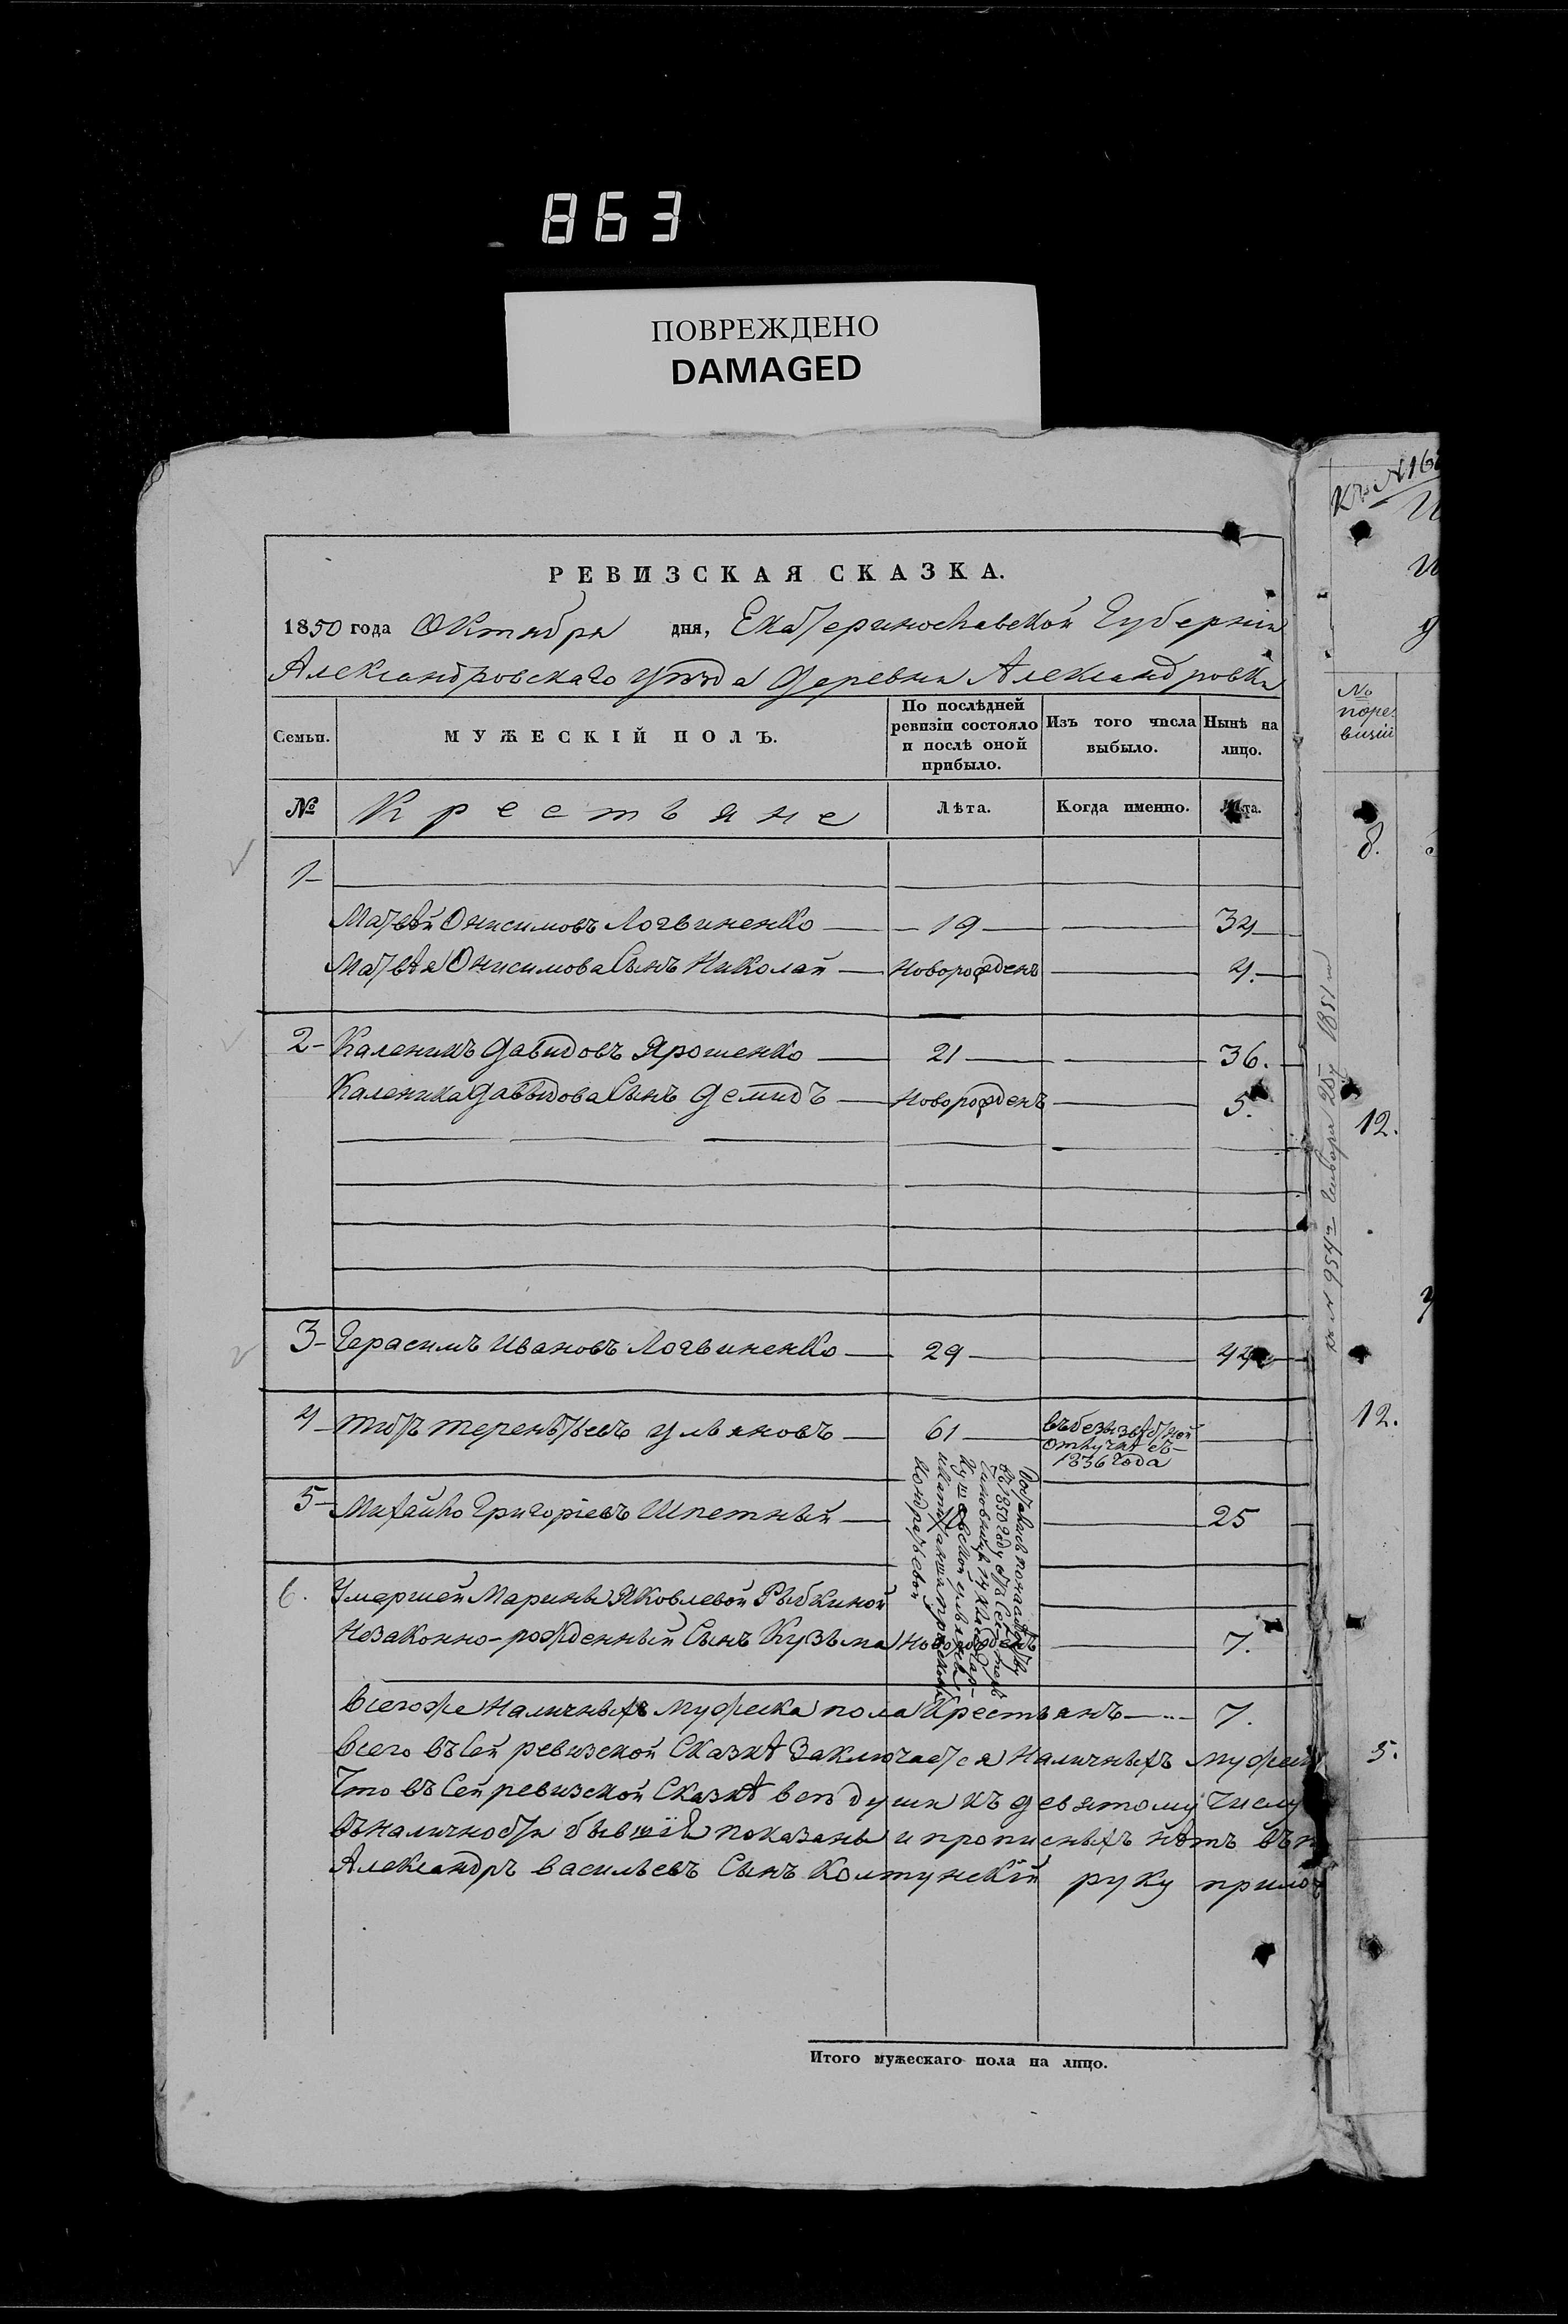 863
ПОВРЕЖДЕНО
DAMAGED
РЕВИЗСКАЯ СКАЗКА.
1850 года Октября дня, Екатеринославской Губернiи
Александровскаго уѣзда Деревни Александровки
Семьи. МУЖЕСКІЙ ПОЛЪ. По послѣдней ревизіи состояло и послѣ оной прибыло. Изъ того числа выбыло. Нынѣ на лицо.
№ Крестьяне Лѣта. Когда именно. Лѣта.
1
Матвѣй Онисимовъ Логвиненко 19 34
Матвѣя Онисимова Сынъ Николай Новорожденъ 4.
2 Каленикъ Давидовъ Ярошенко 21 36.
Каленика Давыдова Сынъ Демидъ Новорожденъ 5.
3 Герасимъ Ивановъ Логвиненко 29 44
4 Титъ Терентьевъ Ульяновъ 61 въ безызвѣстной
отлучкѣ съ
1836 года
5 Михайло Григоріевъ Шпетный 25
6. Умершей Марины Яковлевой Рыбкиной
Незаконно-рожденный Сынъ Кузьма Новорожденъ 7.
Всегоже Наличныхъ мужеска пола Крестьянъ 7.
Всего въ Сей ревизской Сказкѣ Заключается Наличныхъ
Что въ Сей ревизской Сказкѣ всѣ души къ девятому Числу
въ наличности бывшіе показаны и прописныхъ нѣтъ
Александръ Васильевъ Сынъ Колтунскій руку
Итого мужескаго пола на лицо.
№
по ре-
визіи
8.
12.
12.
5.